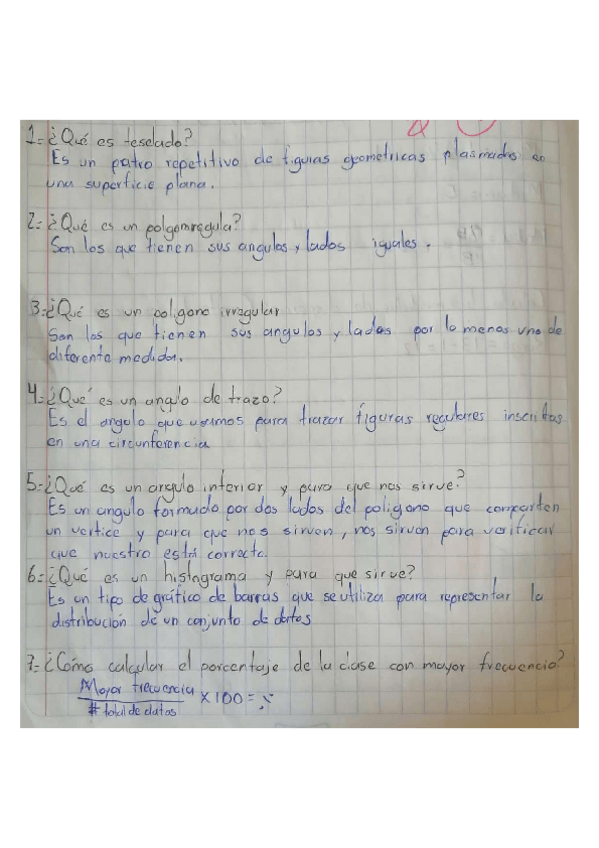 1=¿Qué es teselado?
Es un patro repetitivo de figuras geometricas plasmados en
una superficie plana.
2=¿Qué es un
Son los que tienen sus angulos y lados iguales.
3=¿Qué es un poligono irregular
Son los que tienen sus angulos y lados por lo menos uno de
diferente medida.
4=¿Qué es un angulo de trazo?
Es el angulo que usamos para trazar figuras regulares inscritas
en una circunferencia
5=¿Qué es un angulo interior y para que nos sirve?
Es un angulo formado por dos lados del poligono que comparten
un vertice y para que nos sirven, nos sirven para verificar
que nuestro está correcto.
6=¿Qué es un histograma y para que sirve?
Es un tipo de gráfico de barras que se utiliza para representar la
distribución de un conjunto de datos
7=¿Cómo calcular el porcentaje de la clase con mayor frecuencia?
Mayor frecuencia
× 100 =
# total de datos